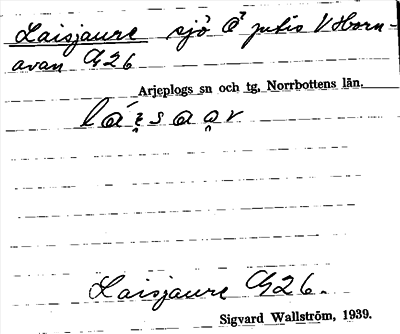 Laisjaure sjö Ö jutis V Horn-
avan G26
Arjeplogs sn och tg, Norrbottens län.
lái̯saɑ̯v
Laisjaure G26.
Sigvard Wallström, 1939.